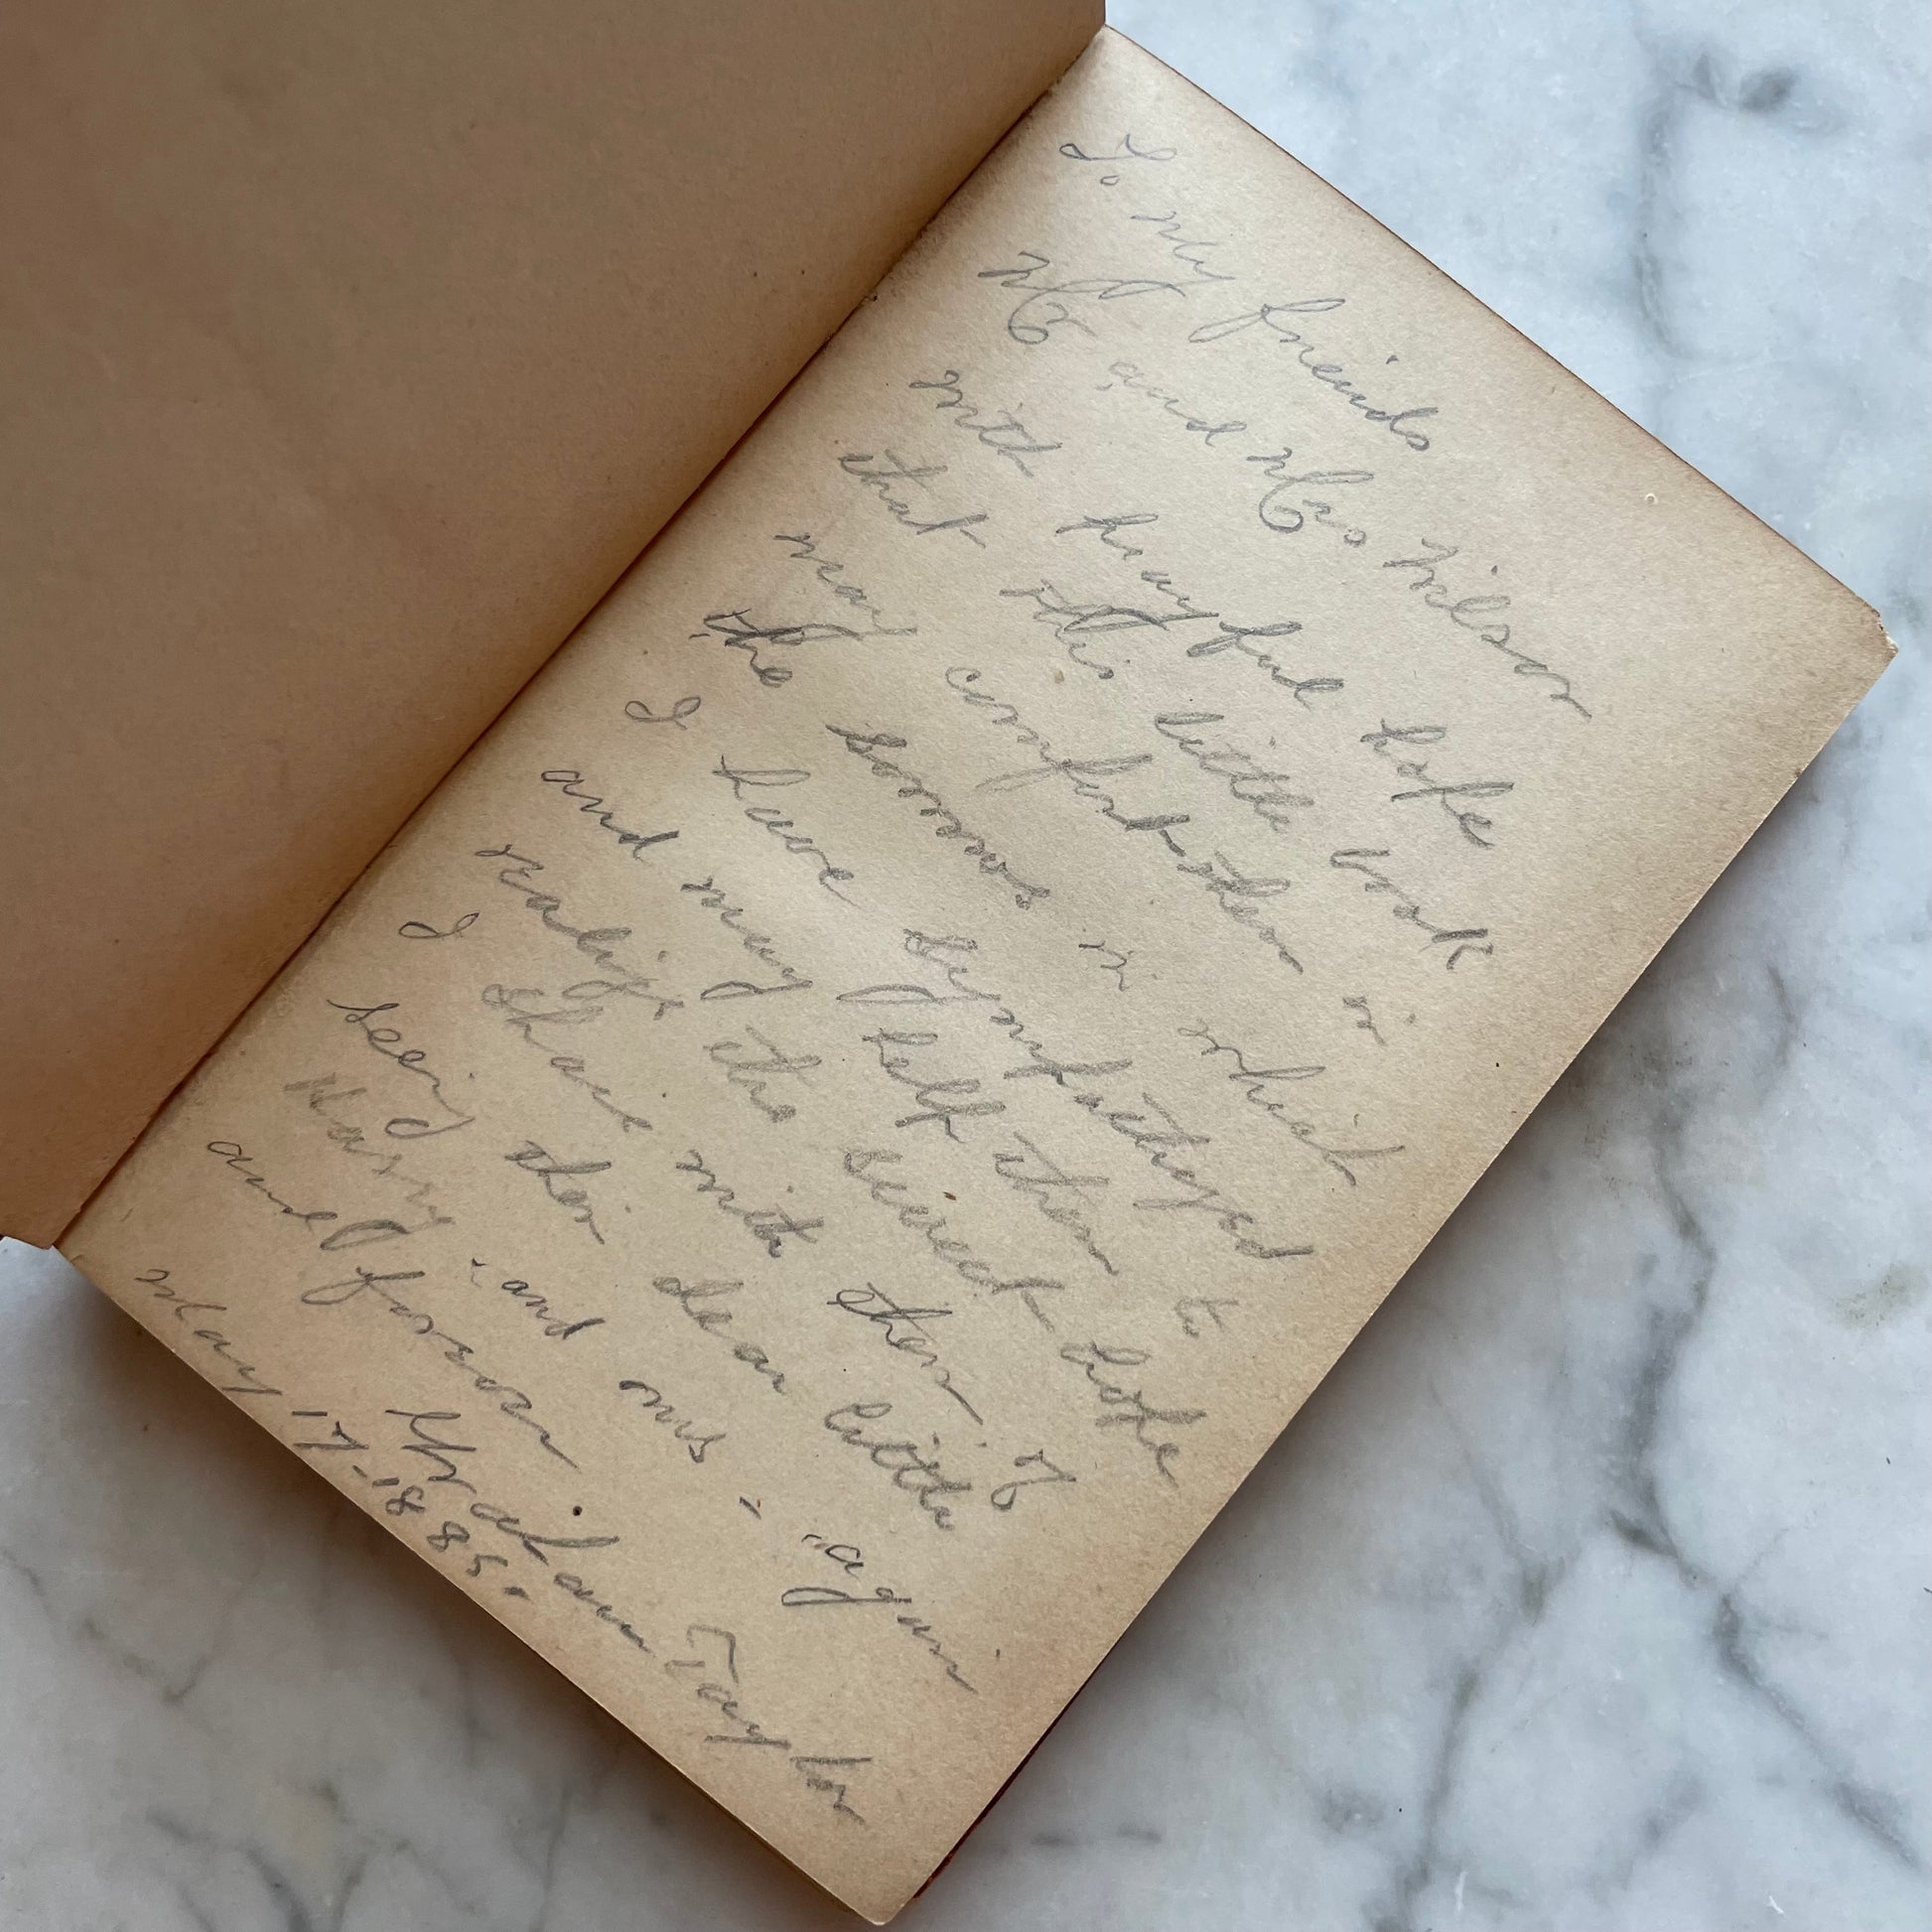 To My friends
Mr and Mrs Wilson
with prayful hope
that this little book
may comfort them in
the sorrow in which
I have sympathized
and may help them to
realize the sweet hope
I share with them of
seeing their dear little
Harry and ours - again
and forever
Graham Taylor
May 17 - 1885.